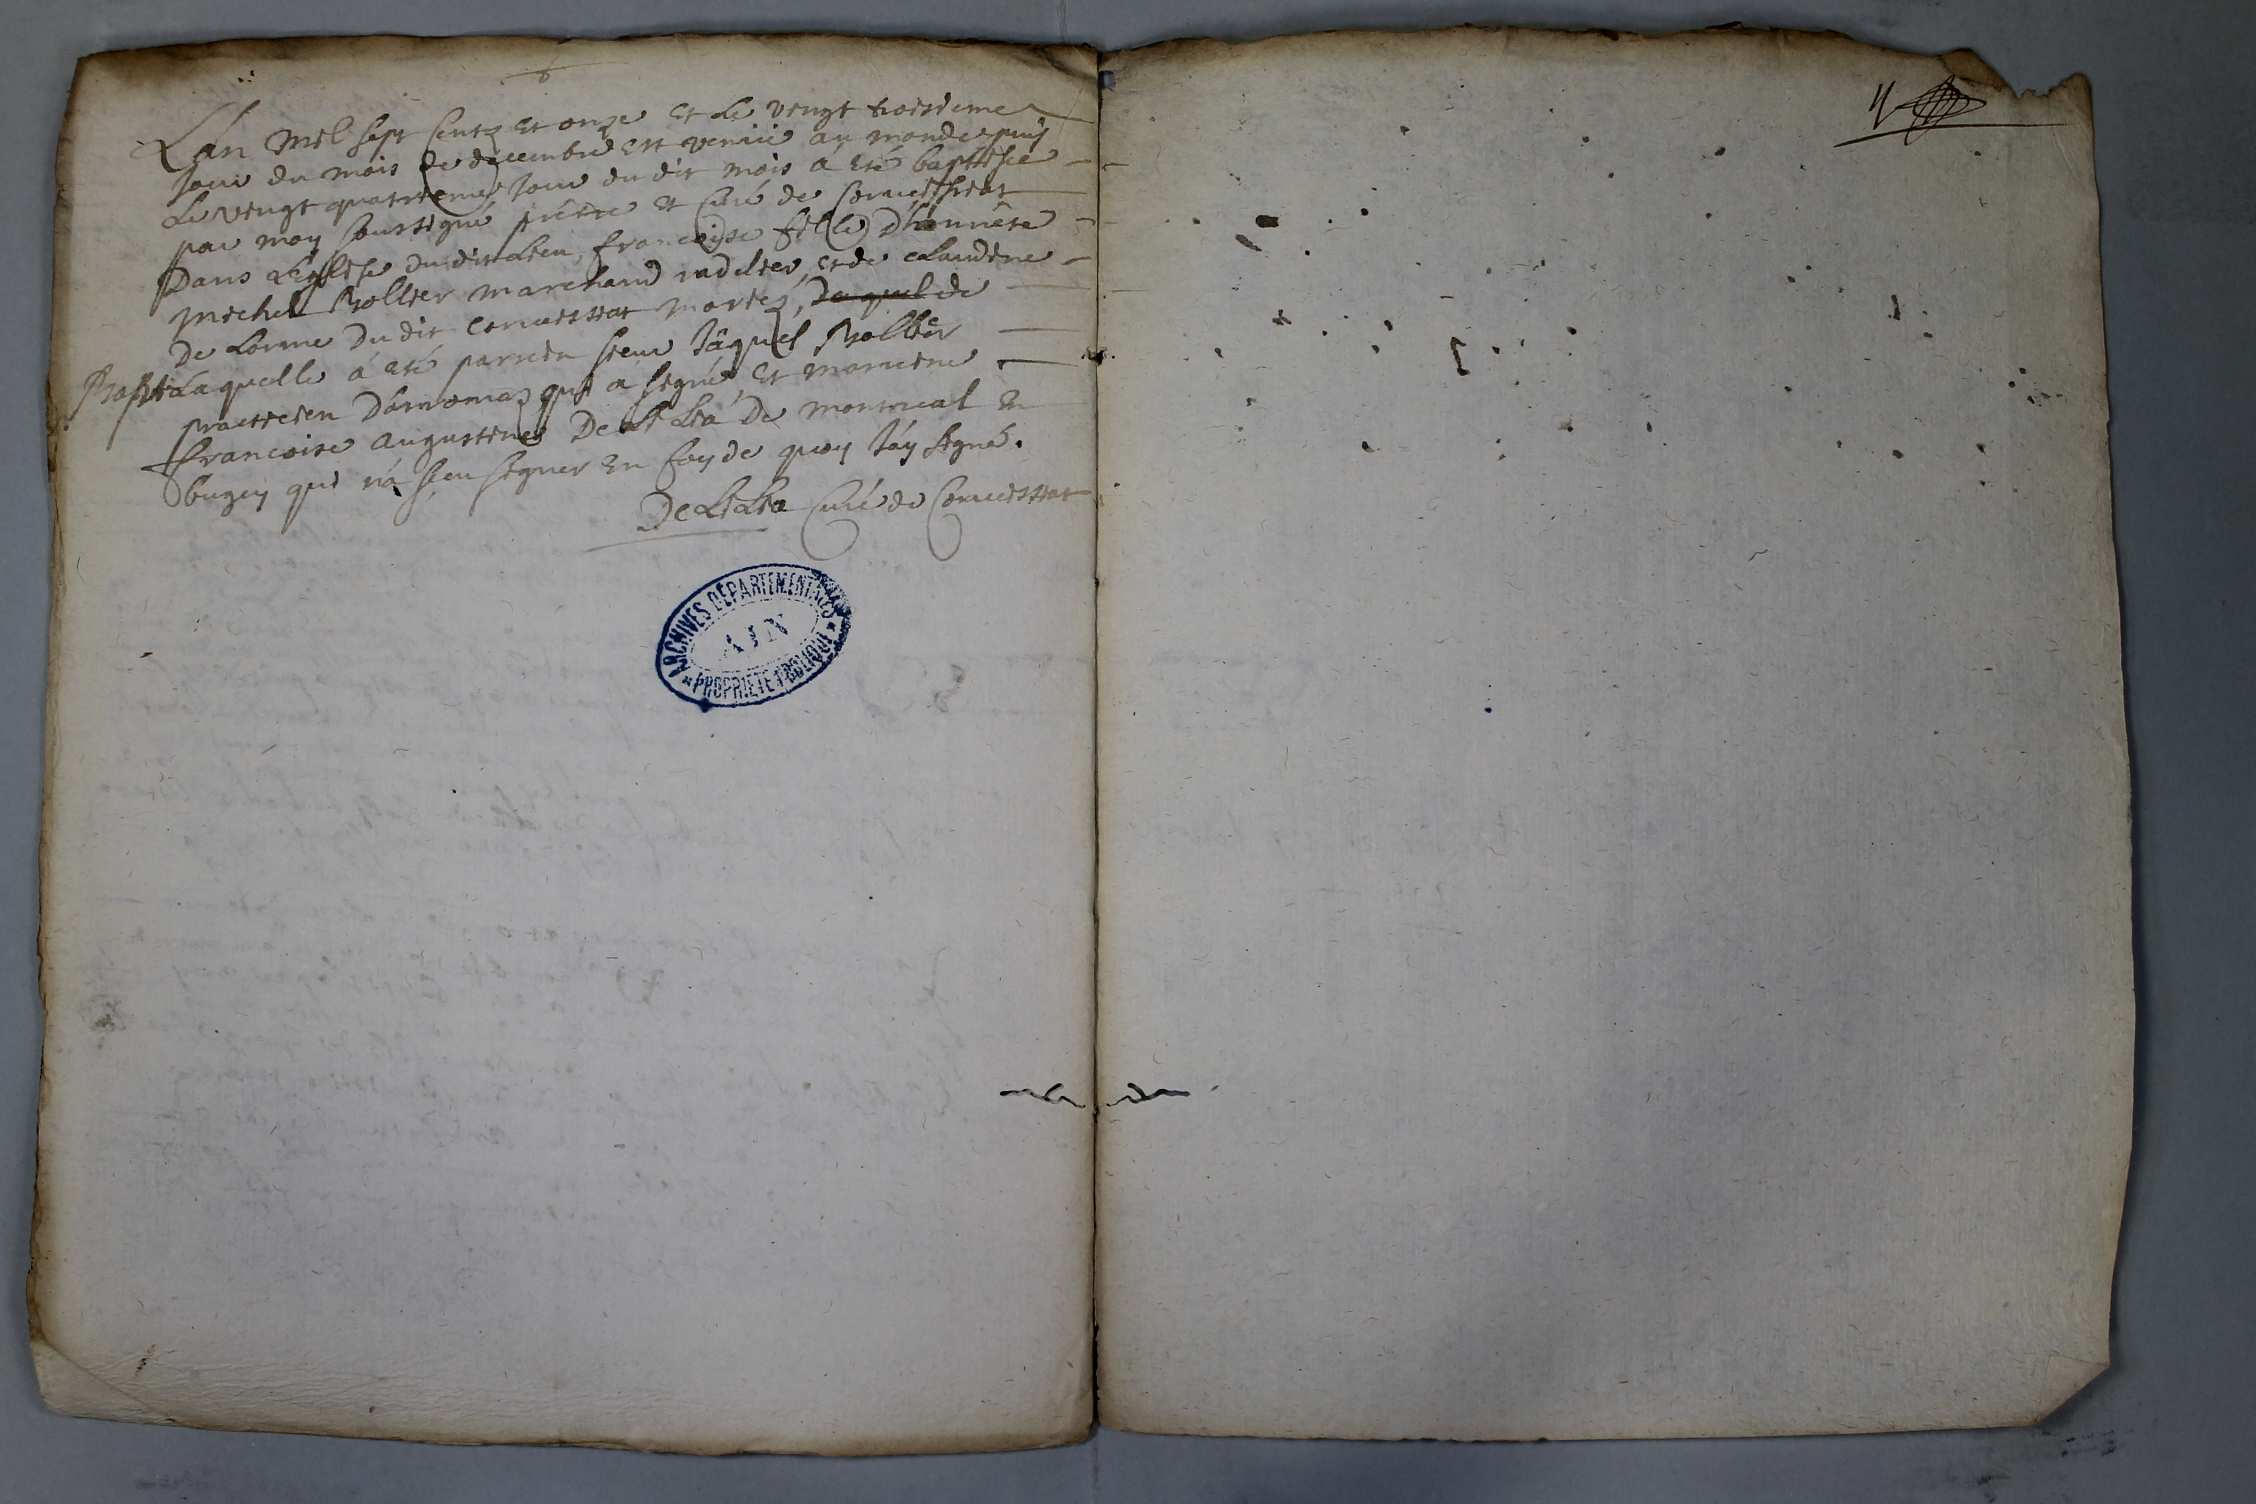 Lan mil sept centz et onze et le vingt troisieme
jour du mois de decembre est venue au monde puis
le vingt quatrieme jour du dit mois a eté baptisée
par moy soussigné prêtre et curé de Corveissiat
Dans Léglise du dit Lieu, francoise fille d'honnête
michel Rollier marchand radelier, et de claudine
De Lorme Du dit Corveissiat mariez, Du quel de
Bapt Laquelle á eté parrein sieur Jâques Rollier
practicien D'arnomaz qui a signé, et marreine
francoise augustine De Lilia De montreal En
bugey qui n'a sceu signer En foy de quoy Jáy signé.
De Lilia Curé de Corveissiat
ARCHIVES DÉPARTEMENTALES
AIN
PROPRIÉTÉ PUBLIQUE